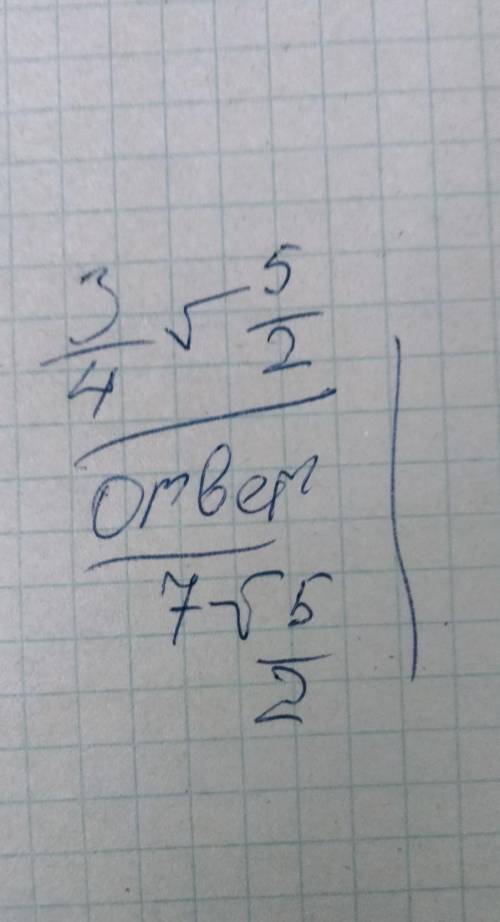 3/4 √ 5/2
Ответ
7√5/2